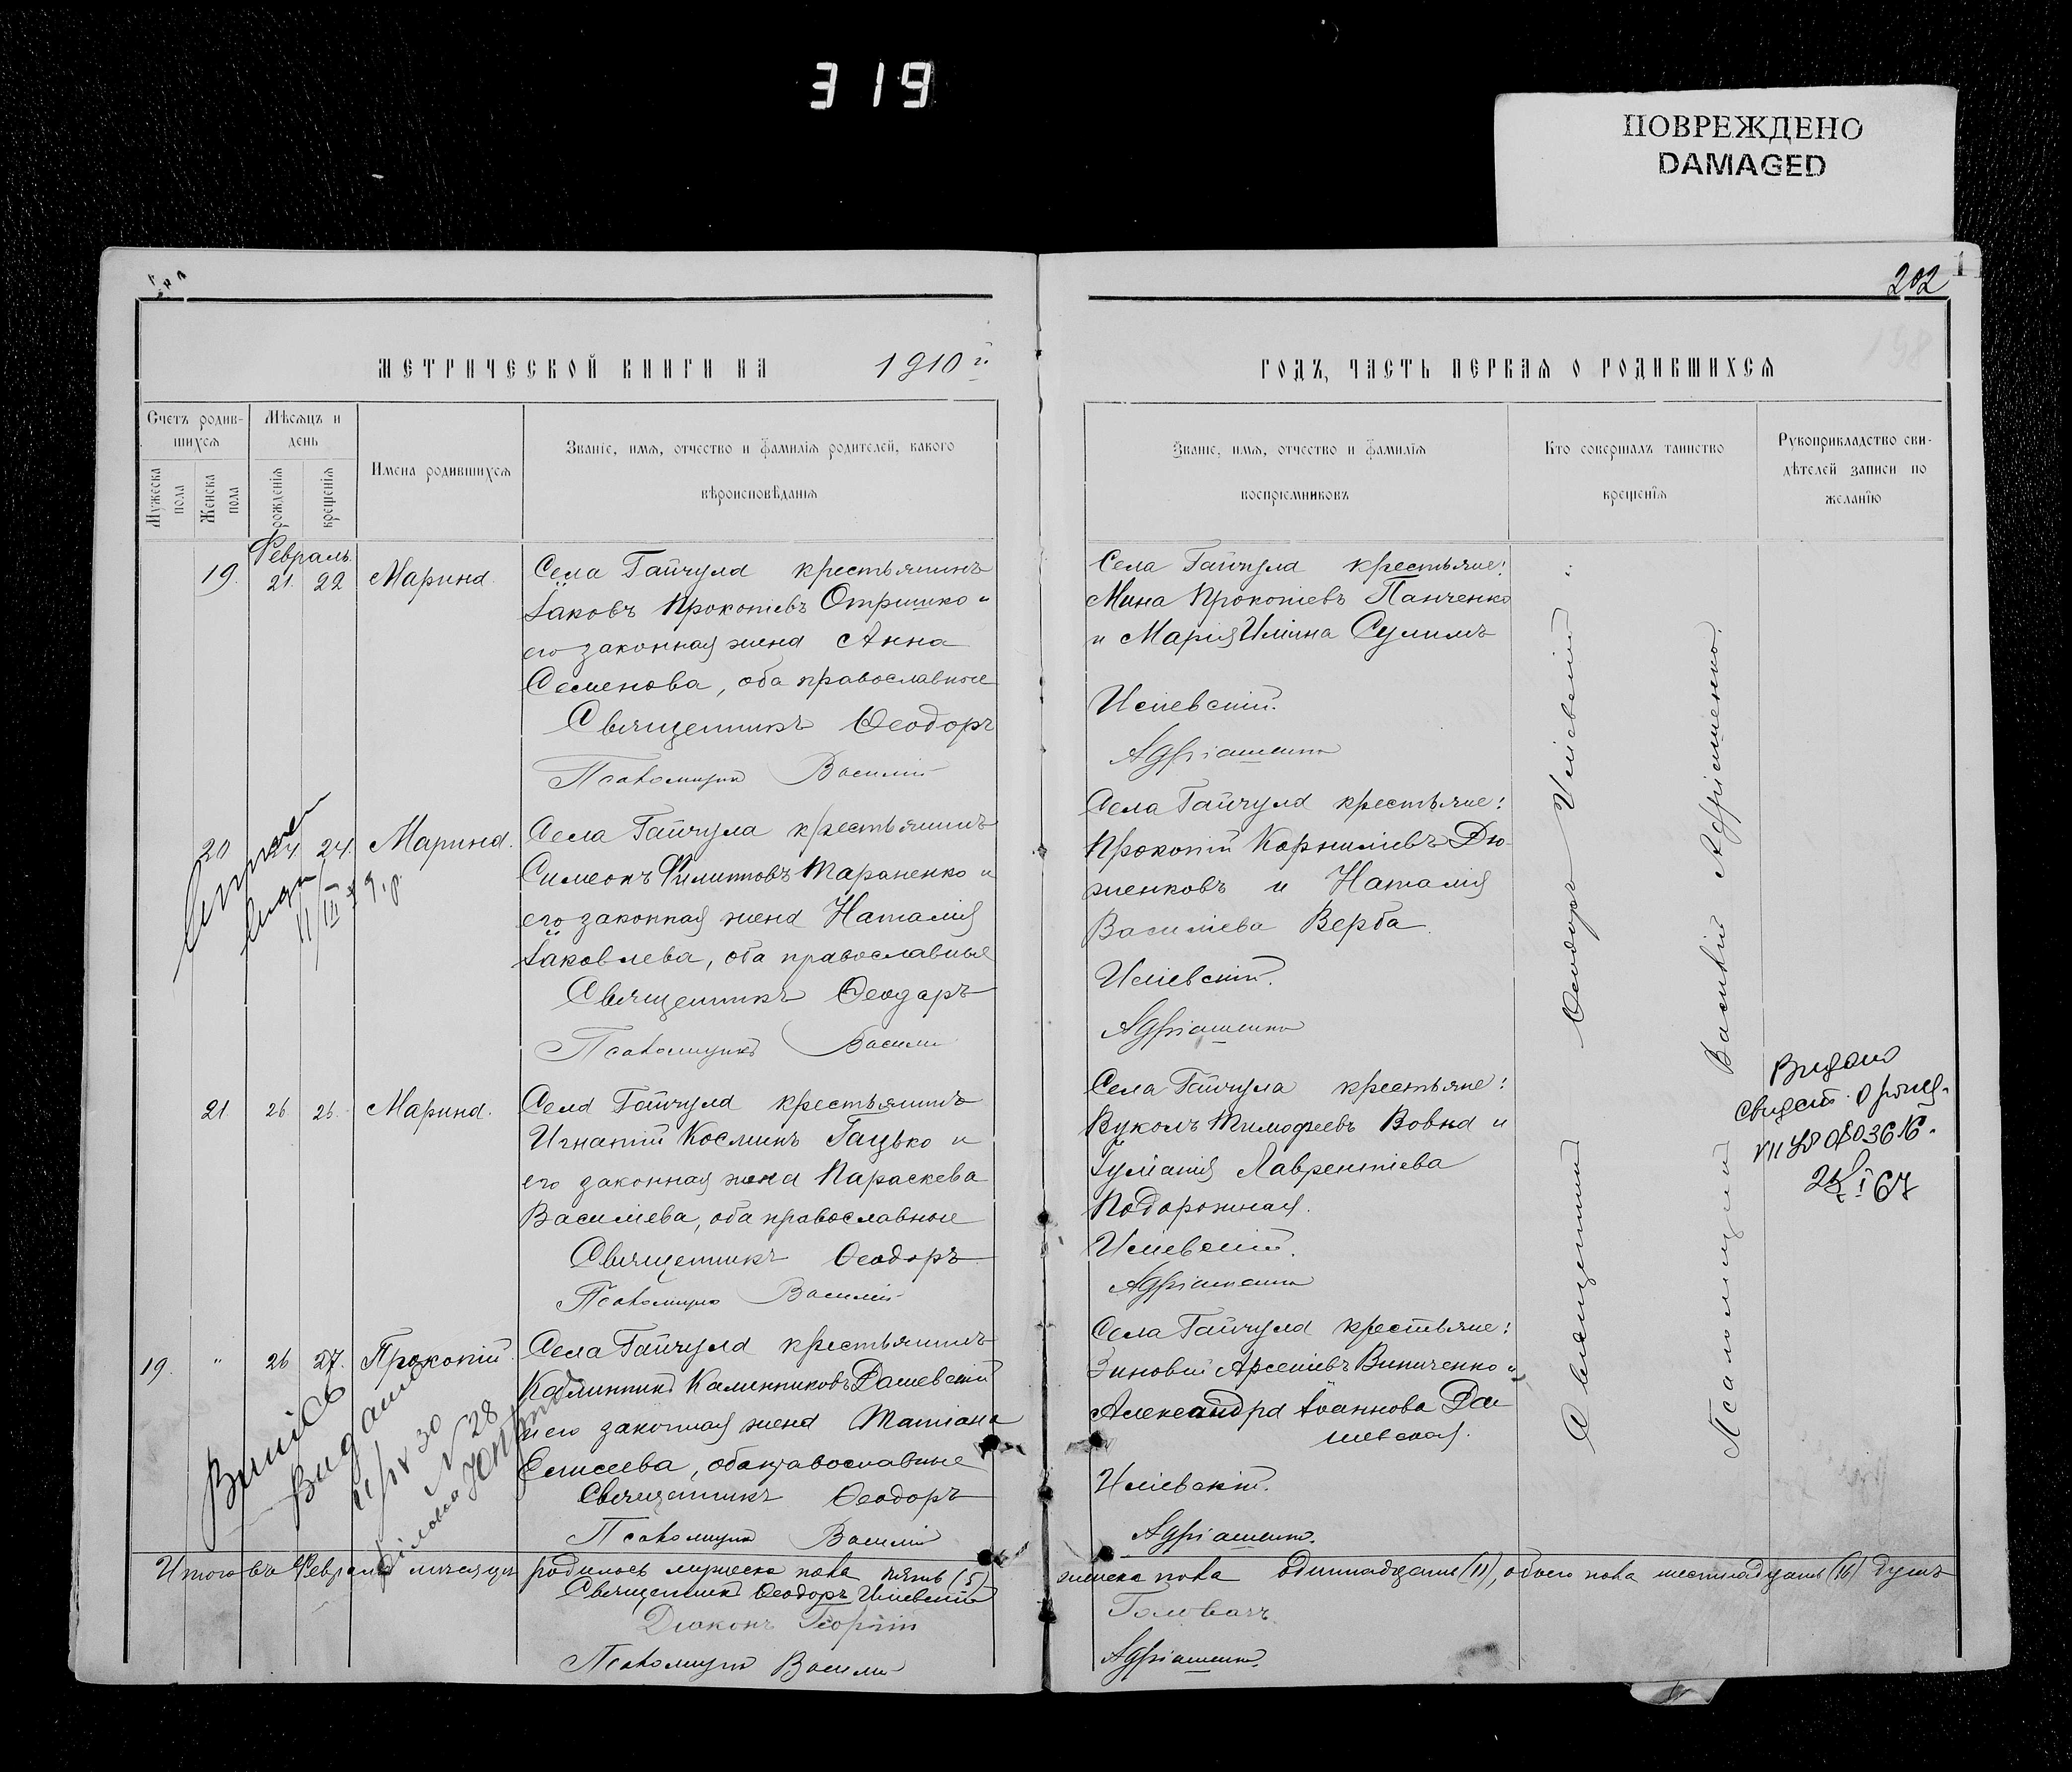 319
ПОВРЕЖДЕНО
DAMAGED
202
МЕТРИЧЕСКОЙ КНИГИ НА 1910й
ГОДЪ, ЧАСТЬ ПЕРВАЯ О РОДИВШИХСЯ
Счетъ родив-
шихся
Мужеска пола
Женска пола
Мѣсяцъ и
день
рожденія
крещенія
Имена родившихся
Званіе, имя, отчество и фамилія родителей, какого
вѣроисповѣданія
Званіе, имя, отчество и фамилія
воспріемниковъ
Кто совершалъ таинство
крещенія
Рукоприкладство сви-
дѣтелей записи по
желанію
Февраль
19. 21. 22 Марина.
Села Гайчула крестьянинъ
Іаковъ Прокопіевъ Отришко и
его законная жена Анна
Семенова, оба православные
Священникъ Ѳеодоръ
Псаломщикъ Василій
Села Гайчула крестьяне:
Мина Прокопіевъ Панченко
и Марія Иліина Сулимъ
Иліевскій.
Адріашенко
20 24. Марина.
Села Гайчула крестьянинъ
Симеонъ Филипповъ Тараненко и
его законная жена Наталія
Іаковлева, оба православные
Священникъ Ѳеодоръ
Псаломщикъ Василій
Села Гайчула крестьяне:
Прокопій Корниліевъ Дю-
женковъ и Наталія
Василіева Верба.
Иліевскій.
Адріашенко
21. 26 26. Марина.
Села Гайчула крестьянинъ
Игнатій Косминъ Гацько и
его законная жена Параскева
Василіева, оба православные
Священникъ Ѳеодоръ
Псаломщикъ Василій
Села Гайчула крестьяне:
Вуколъ Тимофеевъ Вовка и
Іуліанія Лаврентіева
Подорожная.
Иліевскій.
Адріашенко
Видано
свидет. о рожд.
67
19. " 26 27. Прокопій.
Села Гайчула крестьянинъ
Калинникъ Калинниковъ Дашевскій
и его законная жена Татіана
Елисеева, оба православные
Священникъ Ѳеодоръ
Псаломщикъ Василій
Села Гайчула крестьяне:
Зиновій Арсеніевъ Винниченко и
Александра Іоаннова Да-
шевская.
Иліевскій.
Адріашенко.
Видано
N 28
Священникъ Ѳеодоръ Иліевскій
Псаломщикъ Василій Адріашенко.
Итого въ Февралѣ мѣсяцѣ родилось мужеска пола пять (5) женска пола одиннадцать (11), обоего пола шестнадцать (16) душъ
Священникъ Ѳеодоръ Иліевскій
Діаконъ Георгій Головачъ
Псаломщикъ Василій Адріашенко.